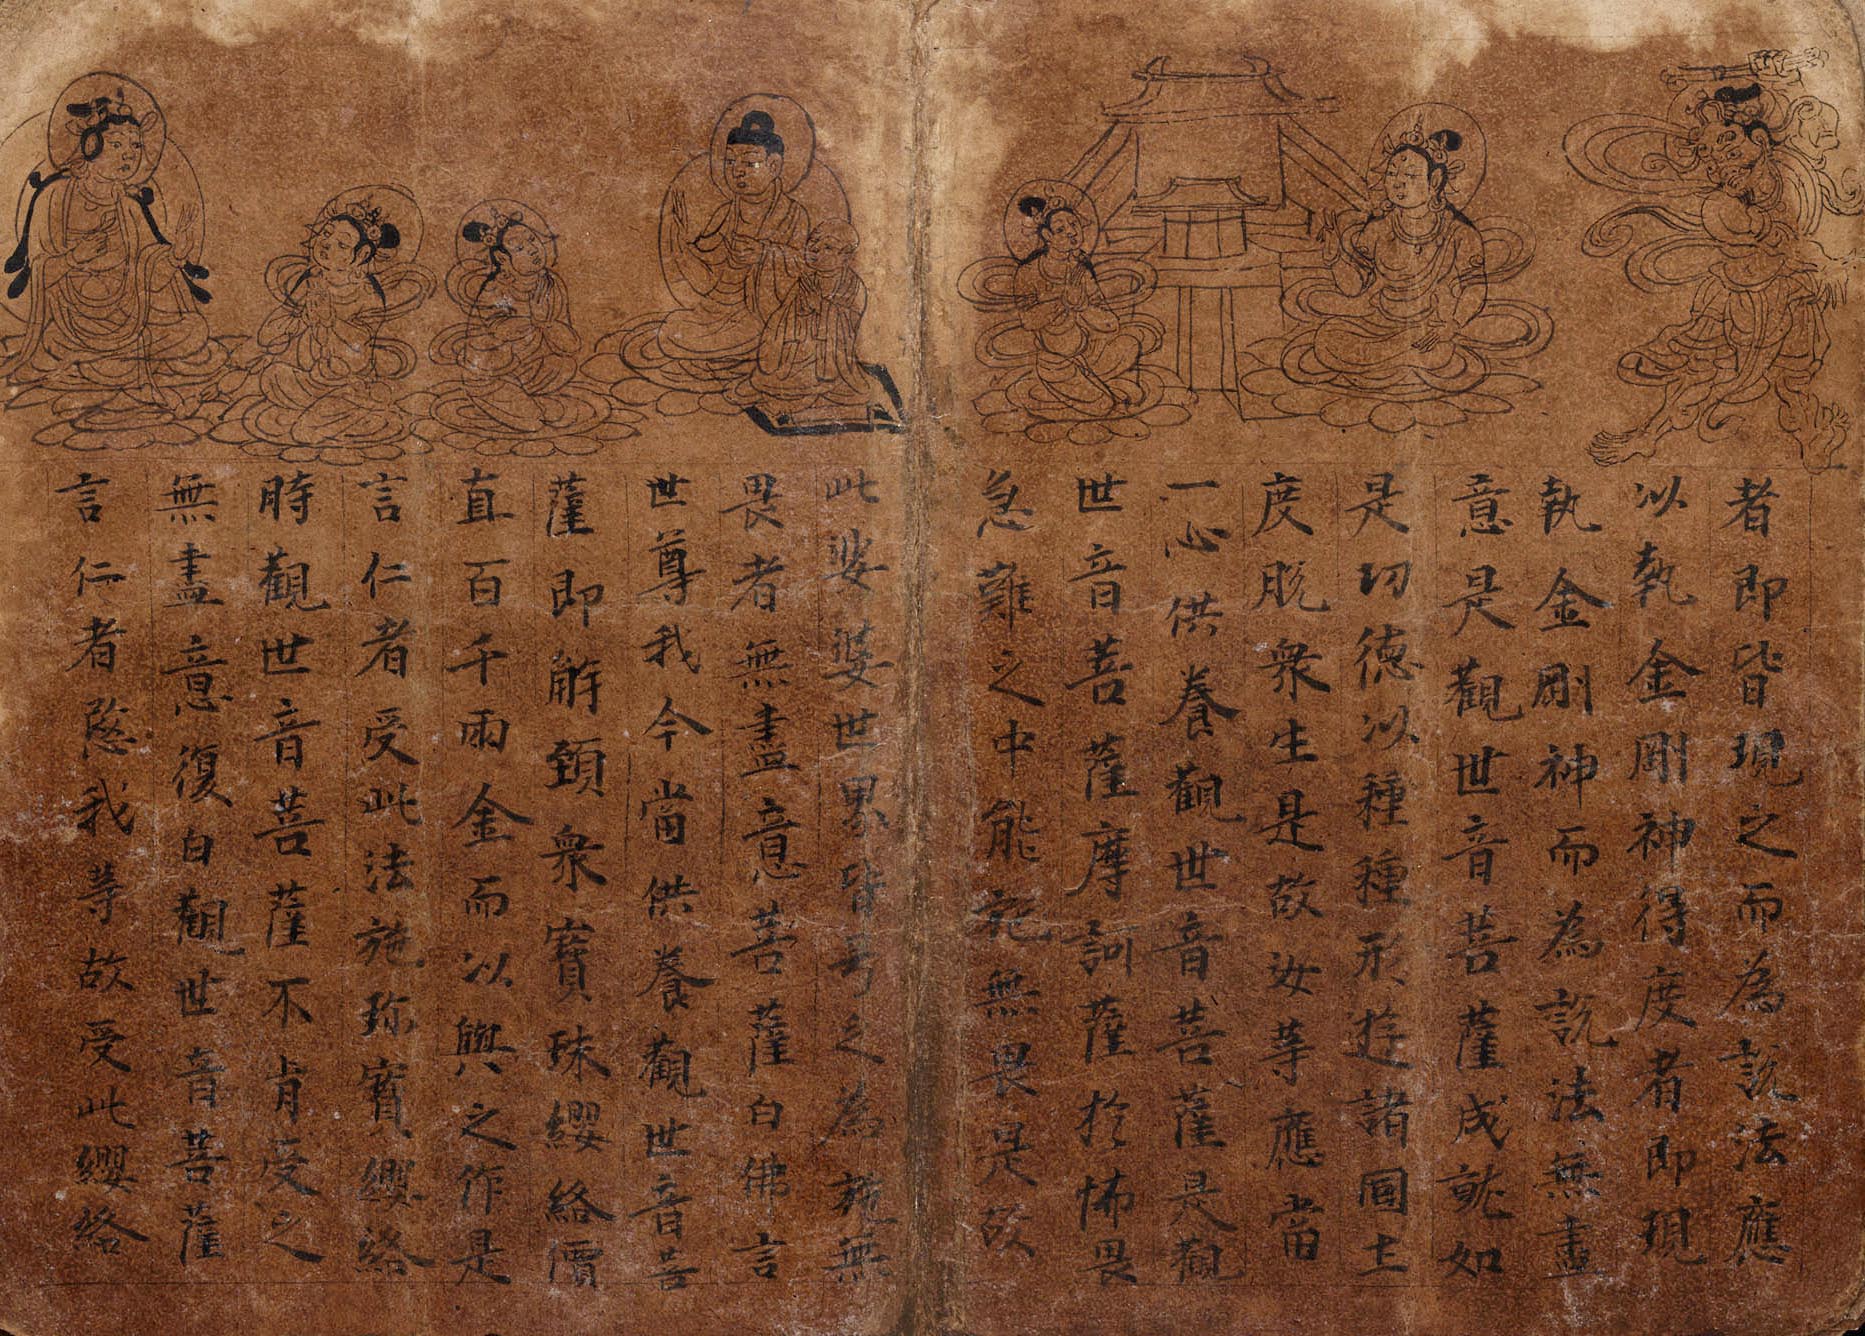 者即皆現之而為說法應
以執金剛神得度者即現
執金剛神而為說法無盡
意是觀世音菩薩成就如
是功德以種種形遊諸國土
度脫衆生是故汝等應當
一心供養觀世音菩薩是觀
世音菩薩摩訶薩於怖畏
急難之中能施無畏是故
此娑婆世界皆号之為施無
畏者無盡意菩薩白佛言
世尊我今當供養觀世音菩
薩即解頸衆寶珠纓絡價
直百千兩金而以與之作是
言仁者受此法施珎寶纓絡
時觀世音菩薩不肯受之
無盡意復白觀世音菩薩
言仁者愍我等故受此纓絡